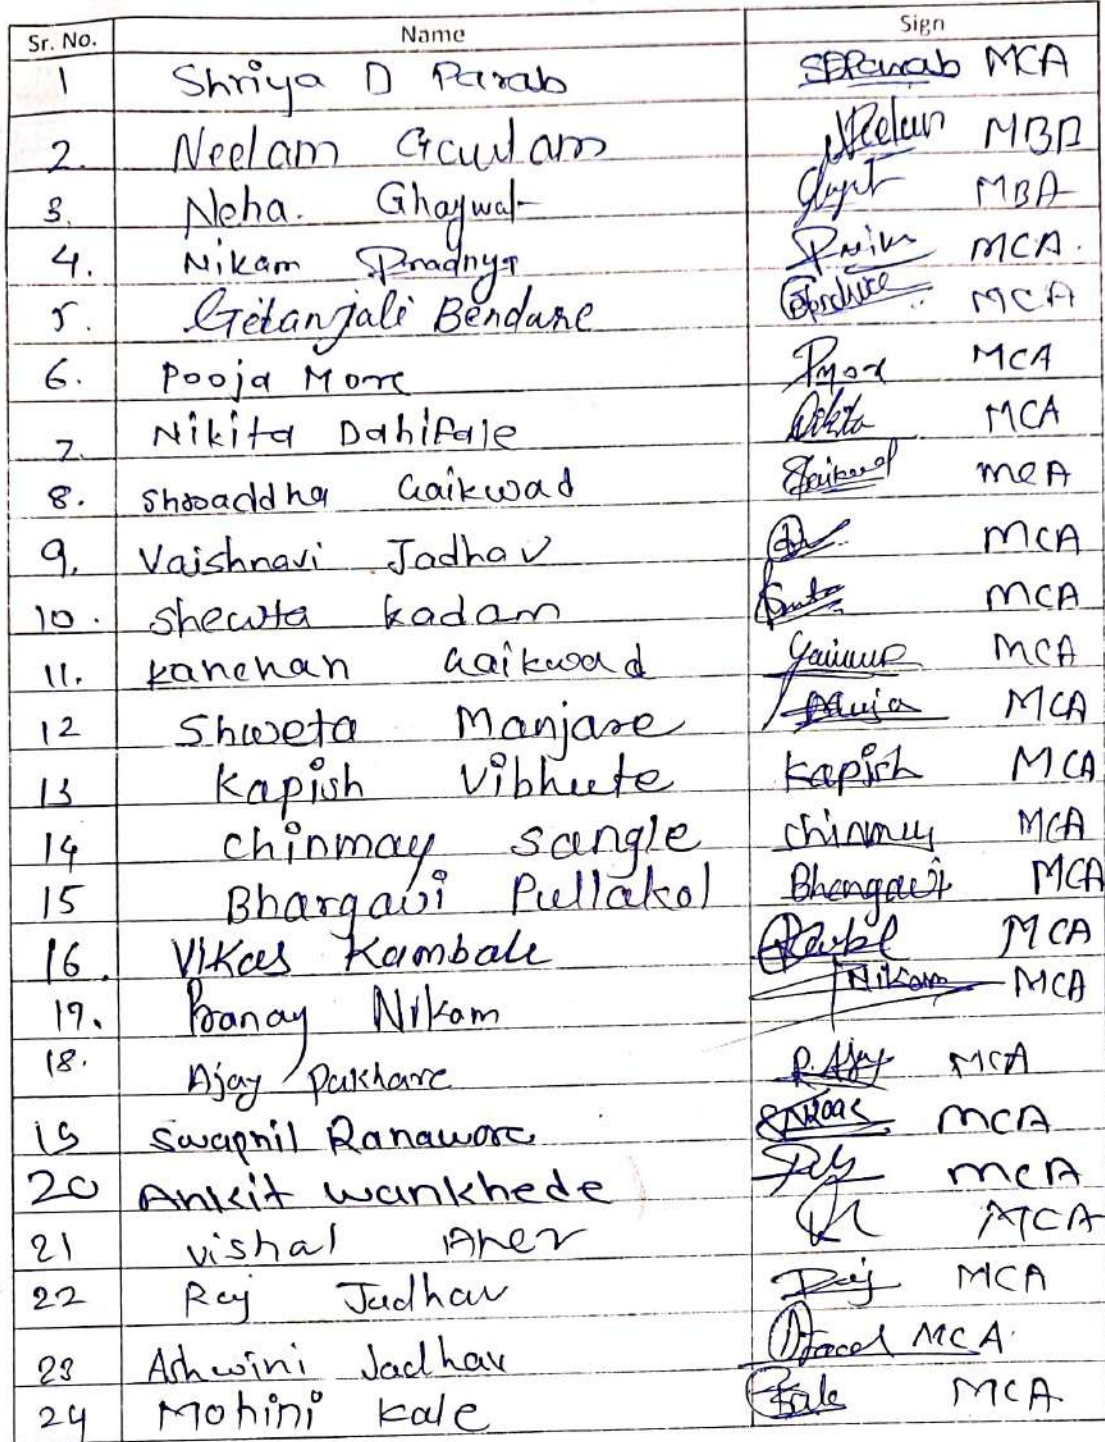 Sr. No. Name Sign
1 Shriya D Parab SDParab MCA
2. Neelam Gautam Neelam MBA
3. Neha. Ghaywat MBA
4. Nikam Pradnya MCA.
5. Gitanjali Bendare MCA
6. Pooja More PMore MCA
7. Nikita Dahifale Nikita MCA
8. Shraddha Gaikwad Gaikwad MCA
9. Vaishnavi Jadhav MCA
10. Shewta Kadam MCA
11. Kanchan Gaikwad MCA
12 Shweta Manjare MCA
13 Kapish Vibhute Kapish MCA
14 Chinmay Sangle Chinmay MCA
15 Bhargavi Pullakol Bhargavi MCA
16. Vikas Kambale MCA
17. Pranay Nikam Nikam MCA
18. Ajay Pakhare P. Ajay MCA
19 Swapnil Ranaware MCA
20 Ankit Wankhede MCA
21 Vishal Aher MCA
22 Raj Jadhav Raj MCA
23 Ashwini Jadhav MCA.
24 Mohini Kale Kale MCA